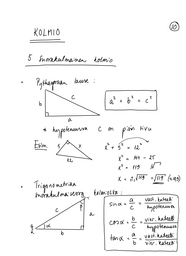 10
KOLMIO
5 Suorakulmainen kolmio
• Pythagoraan lause:
b c a
a² + b² = c²
* hypotenuusa c on pisin sivu
Esim.
5 x 12
x² + 5² = 12²
x² = 144 - 25
x² = 119
• Trigonometria
suorakulmaisessa kolmiossa:
c a α b
sin α = a/c = vast. kateetti / hypotenuusa
cos α = b/c = vier. kateetti / hypotenuusa
tan α = a/b = vast. kateetti / vier. kateetti